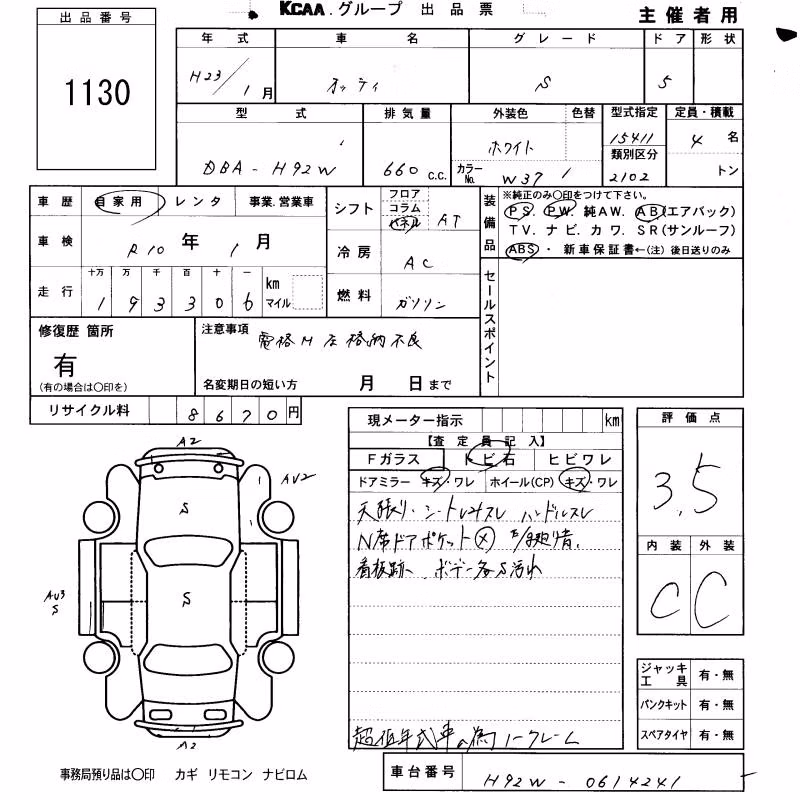 KCAA.グループ 出品票 主催者用
出品番号
1130
年式 車名 グレード ドア 形状
H23/1月 オッティ S 5
型式 排気量 外装色 色替 型式指定 定員・積載
DBA-H92W 660 c.c. ホワイト 15411 4名
カラーNo. W37 類別区分 2102 トン
車歴 自家用 レンタ 事業.営業車
シフト フロア コラム パネル AT
装備品 ※純正のみ○印をつけて下さい。
PS. PW. 純AW. AB(エアバック)
TV. ナビ. カワ. SR(サンルーフ)
ABS・ 新車保証書←(注) 後日送りのみ
車検 R10年1月
冷房 AC
走行 十万 万 千 百 十 一 km マイル
193306
燃料 ガソリン
セールスポイント
修復歴 箇所
有
(有の場合は○印を)
注意事項 電格M 左格納不良
名変期日の短い方 月 日まで
リサイクル料 8670円
現メーター指示 km
【査定員記入】
Fガラス トビ石 ヒビワレ
ドアミラー キズ・ワレ ホイール(CP) キズ・ワレ
天張り・シートレ ハンドルスレ
ドアポケット
看板跡 ボデー各S汚れ
超低年式車の為ノークレーム
評価点
3.5
内装 外装
C C
A2
AU2
S
S
AU3
S
A2
ジャッキ工具 有・無
パンクキット 有・無
スペアタイヤ 有・無
事務局預り品は○印 カギ リモコン ナビロム
車台番号 H92W-0614241